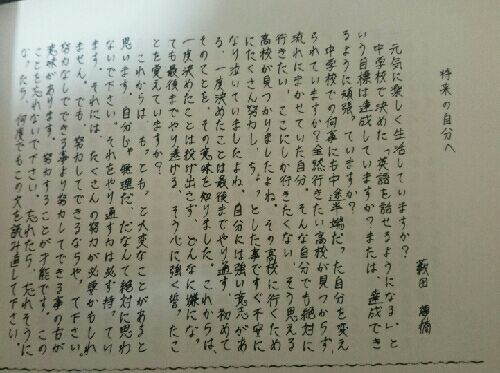 将来の自分へ
元気に楽しく生活していますか？
中学校で決めた「英語を話せるようになる」と
いう目標は達成していますか？または、達成でき
るように頑張っていますか？
中学校での何事にも中途半端だった自分を変え
られていますか？全然行きたい高校が見つからず、
流れにまかせていた自分。そんな自分でも絶対に
行きたい、ここにしか行きたくない、そう思える
高校が見つかりましたよね。その高校に行くため
にたくさん努力し、ちょっとした事ですぐ不安に
なり泣いていましたよね。自分には強い意志があ
る、一度決めたことは最後までやり通す、初めて
そのことを、その意味を知りました。これからは、
一度決めたことは投げ出さず、どんなに嫌にな
っても最後までやり遂げる、そう心に強く誓ったこ
とを覚えていますか？
これからは、もっともっと大変なことがあると
思います。自分じゃ無理だ、だなんて絶対に思わ
ないで下さい。それをやり通す力は必ず持ってい
ます。それには、たくさんの努力が必要かもしれ
ません。でも、努力してできるならやって下さい。
努力なしでできる事より努力してできる事の方が
意味があります。努力することが才能です。この
ことを忘れないで下さい。忘れたら、忘れそうに
なったら、何度でもこの文を読み直して下さい。